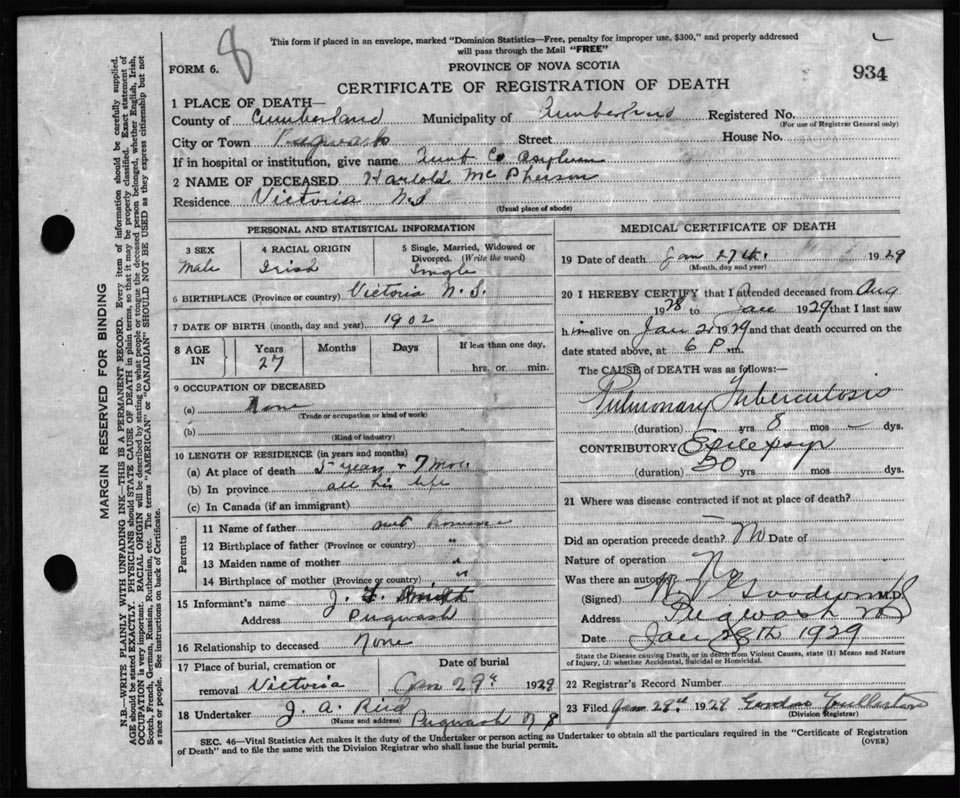 8
This form if placed in an envelope, marked "Dominion Statistics—Free, penalty for improper use, $300," and properly addressed
will pass through the Mail "FREE"
FORM 6.
PROVINCE OF NOVA SCOTIA
934
CERTIFICATE OF REGISTRATION OF DEATH
1 PLACE OF DEATH—
County of Cumberland Municipality of Cumberland Registered No.
(For use of Registrar General only)
City or Town Pugwash Street House No.
If in hospital or institution, give name Cumb Co Asylum
2 NAME OF DECEASED Harlold McPherson
Residence Victoria N.S
(Usual place of abode)
PERSONAL AND STATISTICAL INFORMATION
3 SEX
Male
4 RACIAL ORIGIN
Irish
5 Single, Married, Widowed or
Divorced. (Write the word)
Single
6 BIRTHPLACE (Province or country) Victoria N.S.
7 DATE OF BIRTH (month, day and year) 1902
8 AGE IN
Years
27
Months
Days
If less than one day,
hrs. or min.
9 OCCUPATION OF DECEASED
(a) None
(Trade or occupation or kind of work)
(b)
(Kind of industry)
10 LENGTH OF RESIDENCE (in years and months)
(a) At place of death 5 years + 7 mos.
(b) In province all his life
(c) In Canada (if an immigrant)
Parents
11 Name of father
12 Birthplace of father (Province or country) "
13 Maiden name of mother "
14 Birthplace of mother (Province or country) "
15 Informant's name J. Smith
Address Pugwash
16 Relationship to deceased None
17 Place of burial, cremation or
removal Victoria
Date of burial
Jan 29th 1929
18 Undertaker J. A. Reid
(Name and address) Pugwash N S
MEDICAL CERTIFICATE OF DEATH
19 Date of death Jan 27th. 1929
(Month, day and year)
20 I HEREBY CERTIFY that I attended deceased from Aug
1928 to Jan 1929 that I last saw
him alive on Jan 1929 and that death occurred on
date stated above, at 6 P m.
The CAUSE of DEATH was as follows:—
Pulmonary Tuberculosis
(duration) yrs 8 mos — dys.
CONTRIBUTORY Epilepsy
(duration) 20 yrs mos dys.
21 Where was disease contracted if not at place of death?
Did an operation precede death? No Date of
Nature of operation
Was there an autopsy No
(Signed) Goodwin M.D.
Address Pugwash N S
Date Jan 28th 1929
State the Disease causing Death, or in death from Violent Causes, state (1) Means and Nature
of Injury, (2) whether Accidental, Suicidal or Homicidal.
22 Registrar's Record Number
23 Filed Jan 28th 1929 Gordon
(Division Registrar)
SEC. 46—Vital Statistics Act makes it the duty of the Undertaker or person acting as Undertaker to obtain all the particulars required in the "Certificate of Registration
of Death" and to file the same with the Division Registrar who shall issue the burial permit.
(OVER)
MARGIN RESERVED FOR BINDING
N.B.—WRITE PLAINLY WITH UNFADING INK—THIS IS A PERMANENT RECORD. Every item of information should be carefully supplied.
AGE should be stated EXACTLY. PHYSICIANS should STATE CAUSE OF DEATH in plain terms, so that it may be properly classified. Exact statement of
OCCUPATION is very important. RACIAL ORIGIN will be described by stating to what people or tongue the deceased person belonged, whether English, Irish,
Scotch, French, German, Russian, Ruthenian, etc. The terms "AMERICAN" or "CANADIAN" SHOULD NOT BE USED as they express citizenship but not
a race or people. See instructions on back of Certificate.